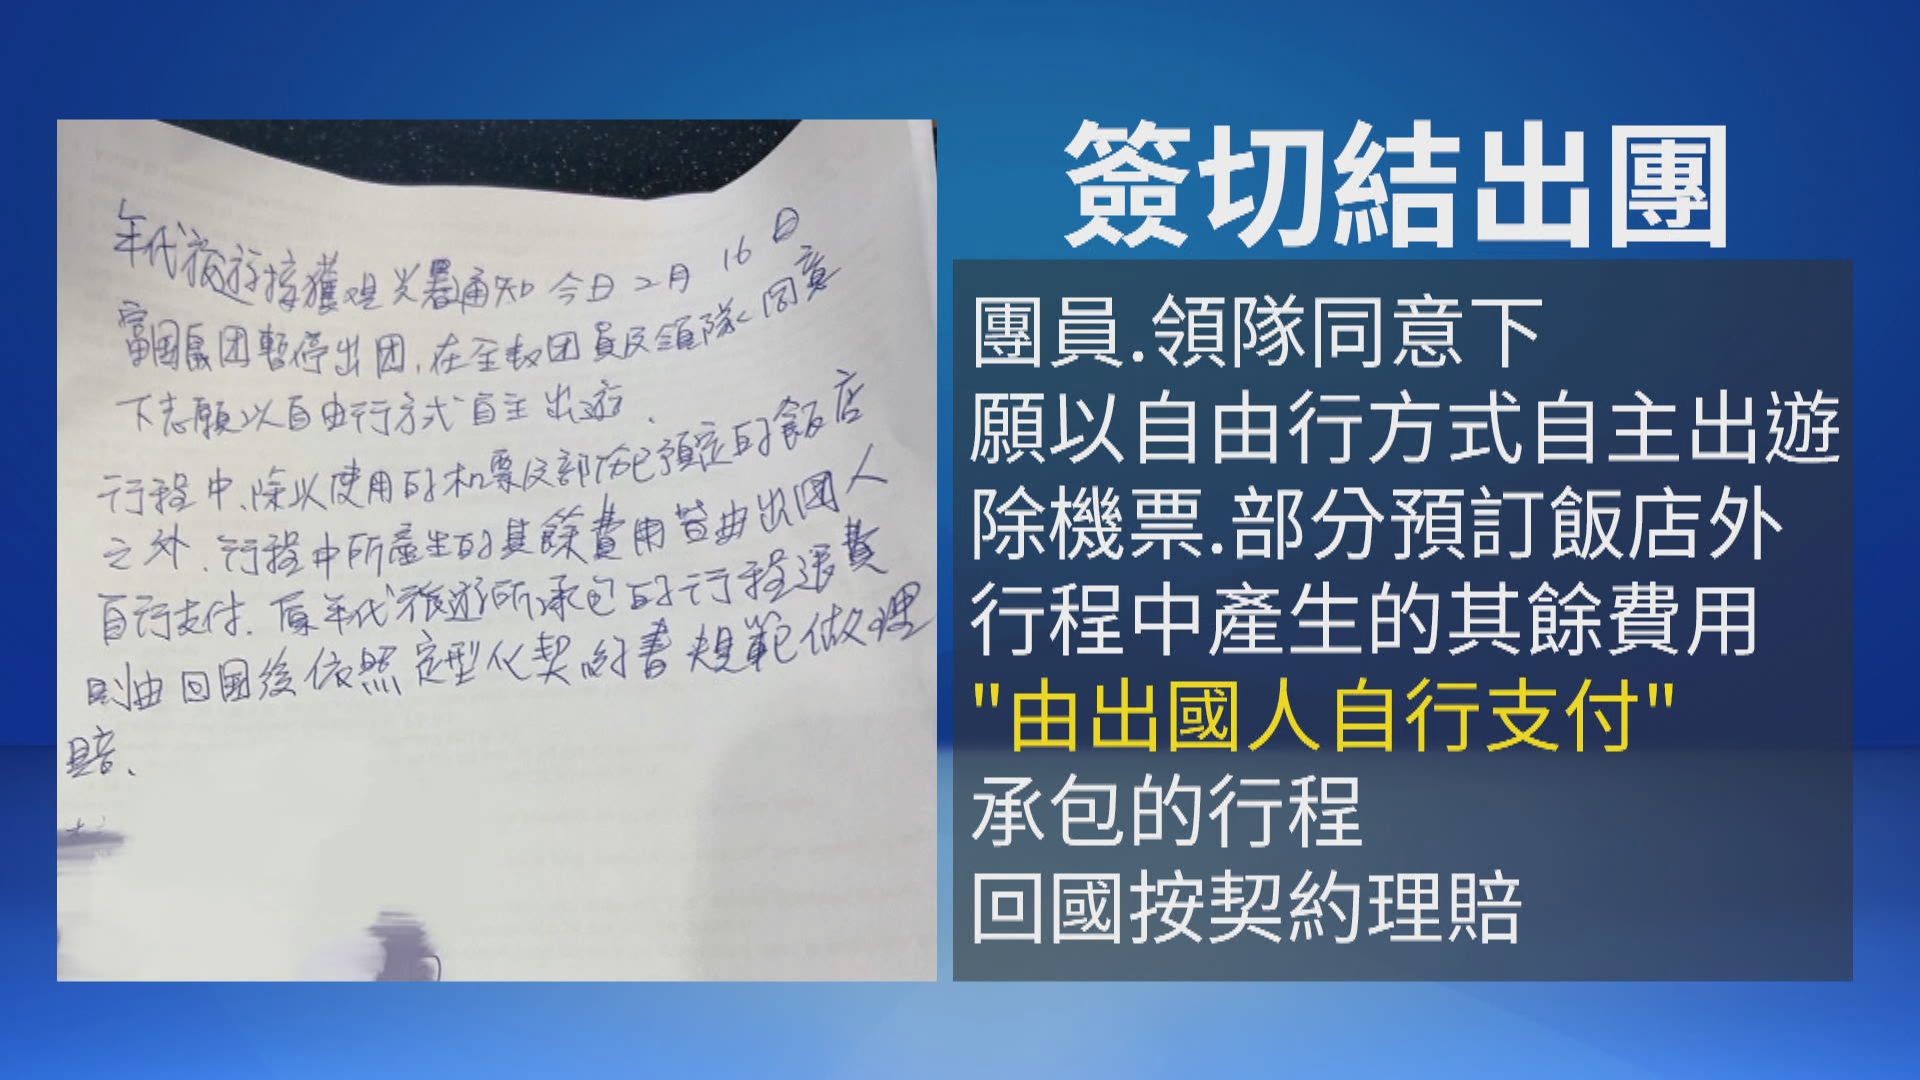 年代旅遊接獲观光署通知今日2月16日
富國島团暫停出团,在全数团員及領隊同意
下志願以自由行方式自主出遊.
行程中,除以使用的机票及部份已預定的飯店
之外,行程中所產生的其餘費用皆由出國人
自行支付.原年代旅遊所承包的行程退費
則由回國後依照定型化契約書規範做理
賠.
簽切結出團
團員.領隊同意下
願以自由行方式自主出遊
除機票.部分預訂飯店外
行程中產生的其餘費用
"由出國人自行支付"
承包的行程
回國按契約理賠